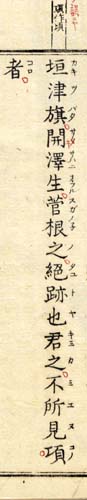 垣津旗開澤生菅根之絶跡也君之不所見項
カキツ バタ サク サハニ オフル スガノ子ノ タユ トヤ キミ カ ミエヌ コノ
者
コロ